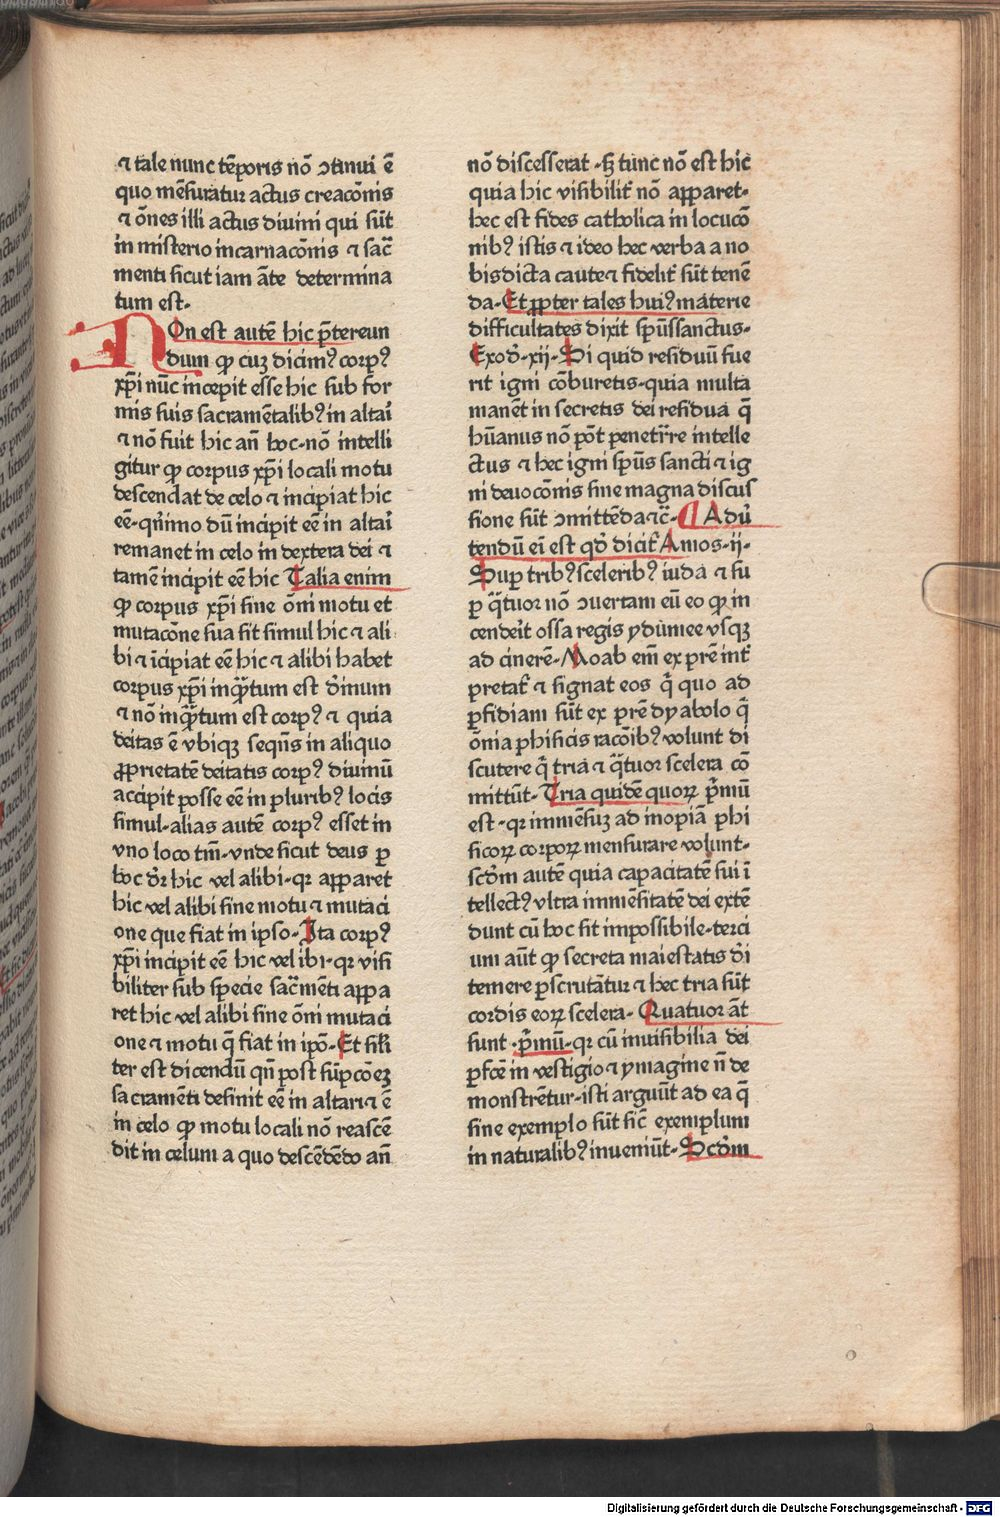 ⁊ tale nunc tēporis nō ↄtinui ē
quo mēſuratur actus creacōnis
⁊ ōnes illi actus diuini qui ſūt
in miſterio incarnacōnis ⁊ ſac̄
menti ſicut iam āte determina
tum est.
NOn est autē hic p̄tereun
dum ꝙ cuꝫ dicimꝰ corpꝰ
xp̄i nūc incepit esse hic ſub for
mis ſuis ſacramētalibꝰ in altaī
⁊ nō fuit hic an̄ hoc. nō intelli
gitur ꝙ corpus xp̄i locali motu
deſcendat de celo ⁊ incipiat hic
eē. qn̄imo dū incipit eē in altaī
remanet in celo in dextera dei ⁊
tamē incipit eē hic Talia enim
ꝙ corpus xp̄i ſine ōni motu et
mutacōne ſua ſit ſimul hic ⁊ ali
bi ⁊ īcipiat eē hic ⁊ alibi habet
corpus xp̄i inqͣtum est diuinum
⁊ nō inqͣtum est corpꝰ ⁊ quia
deitas ē vbiqꝫ ſeqn̄s in aliquo
ꝓprietatē deitatis corpꝰ diuinū
accipit poſſe eē in pluribꝰ locis
ſimul. alias autē corpꝰ eſſet in
vno loco tm̄. vnde ſicut deus ꝑ
hoc dr̄ hic vel alibi. qr apparet
hic vel alibi ſine motu ⁊ mutaci
one que fiat in ipſo. Ita corpꝰ
xp̄i incipit eē hic vel ibi. qr viſi
biliter ſub ſpecie ſac̄menti appa
ret hic vel alibi ſine ōni mutaci
one ⁊ motu q̄ fiat in ip̄o. Et ſiꝉi
ter est dicendū qn̄ post ſūpcōeꝫ
ſacramēti definit eē in altari ⁊ ē
in celo ꝙ motu locali nō reaſcē
dit in celum a quo deſcēdēdo an̄
nō diſceſſerat. ſꝫ tunc nō est hic
quia hic viſibilit̄ nō apparet.
hec est fides catholica in locucō
nibꝰ istis ⁊ ideo hec verba a no
bis dicta caute ⁊ fidelit̄ ſūt tenē
da. Et ꝓpter tales huiꝰ materie
difficultates dixit ſpūsſanctus.
Exod̄. xij. Si quid reſiduū fue
rit igni cōburetis. quia multa
manēt in ſecretis dei reſidua q̄
hūanus nō pōt penetrare intelle
ctus ⁊ hec igni ſpūs ſancti ⁊ ig
ni deuocōnis ſine magna diſcuſ
ſione ſūt ↄmittēda ⁊c̄. Aduer
tendū eī est qd̄ dicit̄ Amos. ij.
Suꝑ tribꝰ ſceleribꝰ iuda ⁊ ſu
ꝑ q̄tuor nō ↄuertam eū eo ꝙ in
cenderit oſſa regis ydumee vſqꝫ
ad cinerē. Moab em̄ ex prē int̄
pretat̄ ⁊ ſignat eos q̄ quo ad
ꝑfidiam ſūt ex prē dyabolo q̄
ōnia phiſicis racōibꝰ volunt di
ſcutere q̄ tria ⁊ q̄tuor ſcelera cō
mittūt. Tria quidē quoꝝ p̄mū
est. qr immēſuꝫ ad inopiā phi
ſicoꝝ corpoꝝ menſurare volunt.
ſcd̄m autē quia capacitatē ſui ī
tellectꝰ vltra immēſitatē dei extē
dunt cū hoc ſit impoſſibile. terci
um aūt ꝙ ſecreta maiestatis dei
temere ꝑſcrutātur ⁊ hec tria ſūt
cordis eoꝝ ſcelera. Quatuor āt
ſunt. p̄mū. qr cū inuiſibilia dei
ꝑfcē in vestigio ⁊ ymagine n̄ de
monstrētur. isti arguūt ad ea q̄
ſine exemplo ſūt ſic̄ exemplum
in naturalibꝰ inueniūt. Scd̄m
Digitalisierung gefördert durch die Deutsche Forschungsgemeinschaft - DFG